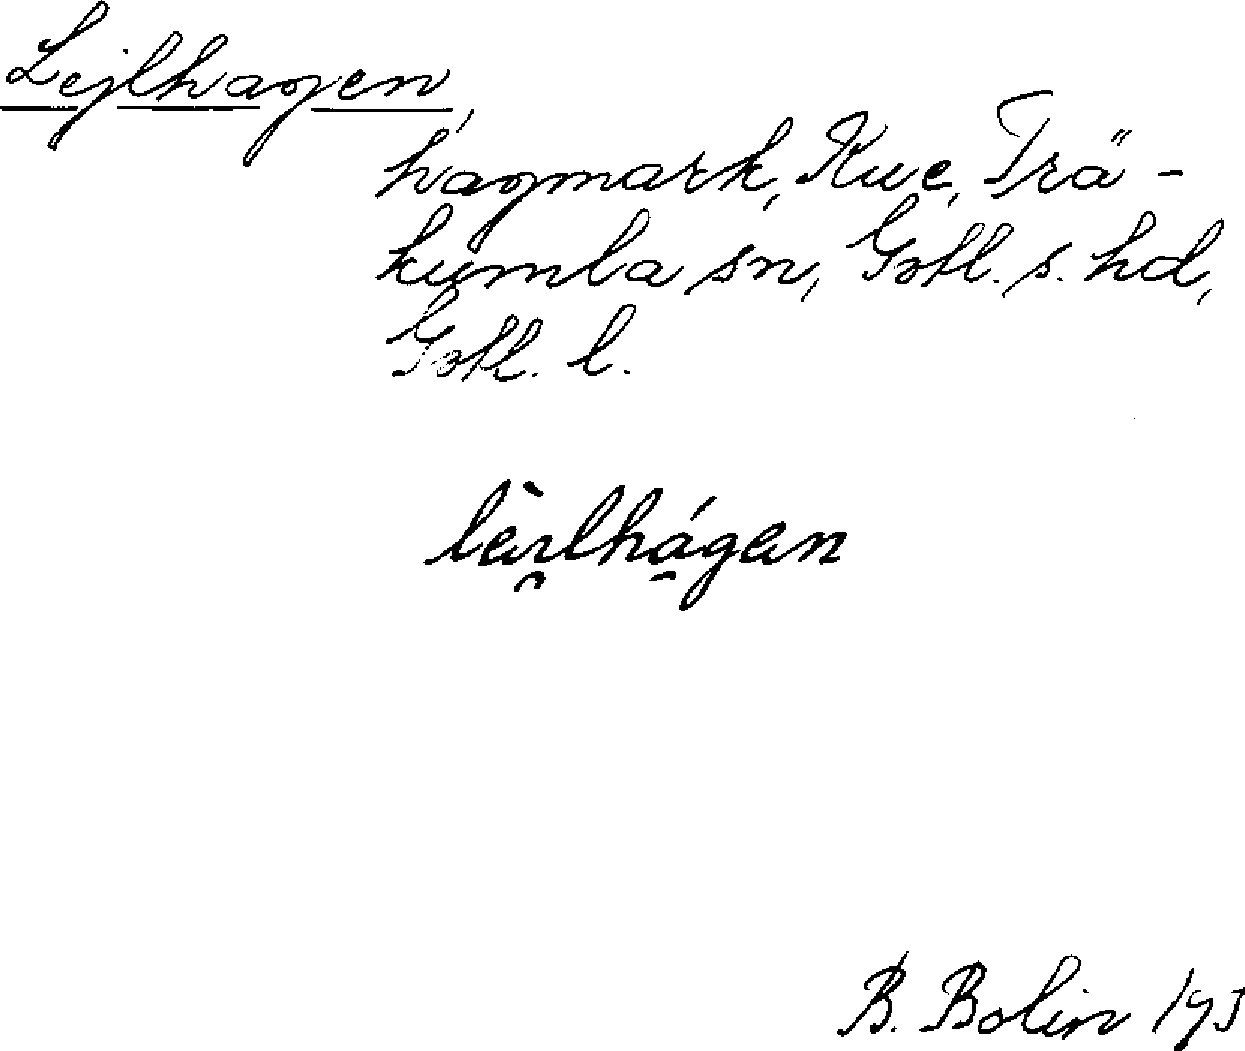 Lejlhagen,
hagmark, Kue, Trä-
kumla sn, Gotl. s. hd,
Gotl. l.
B. Bolin 193